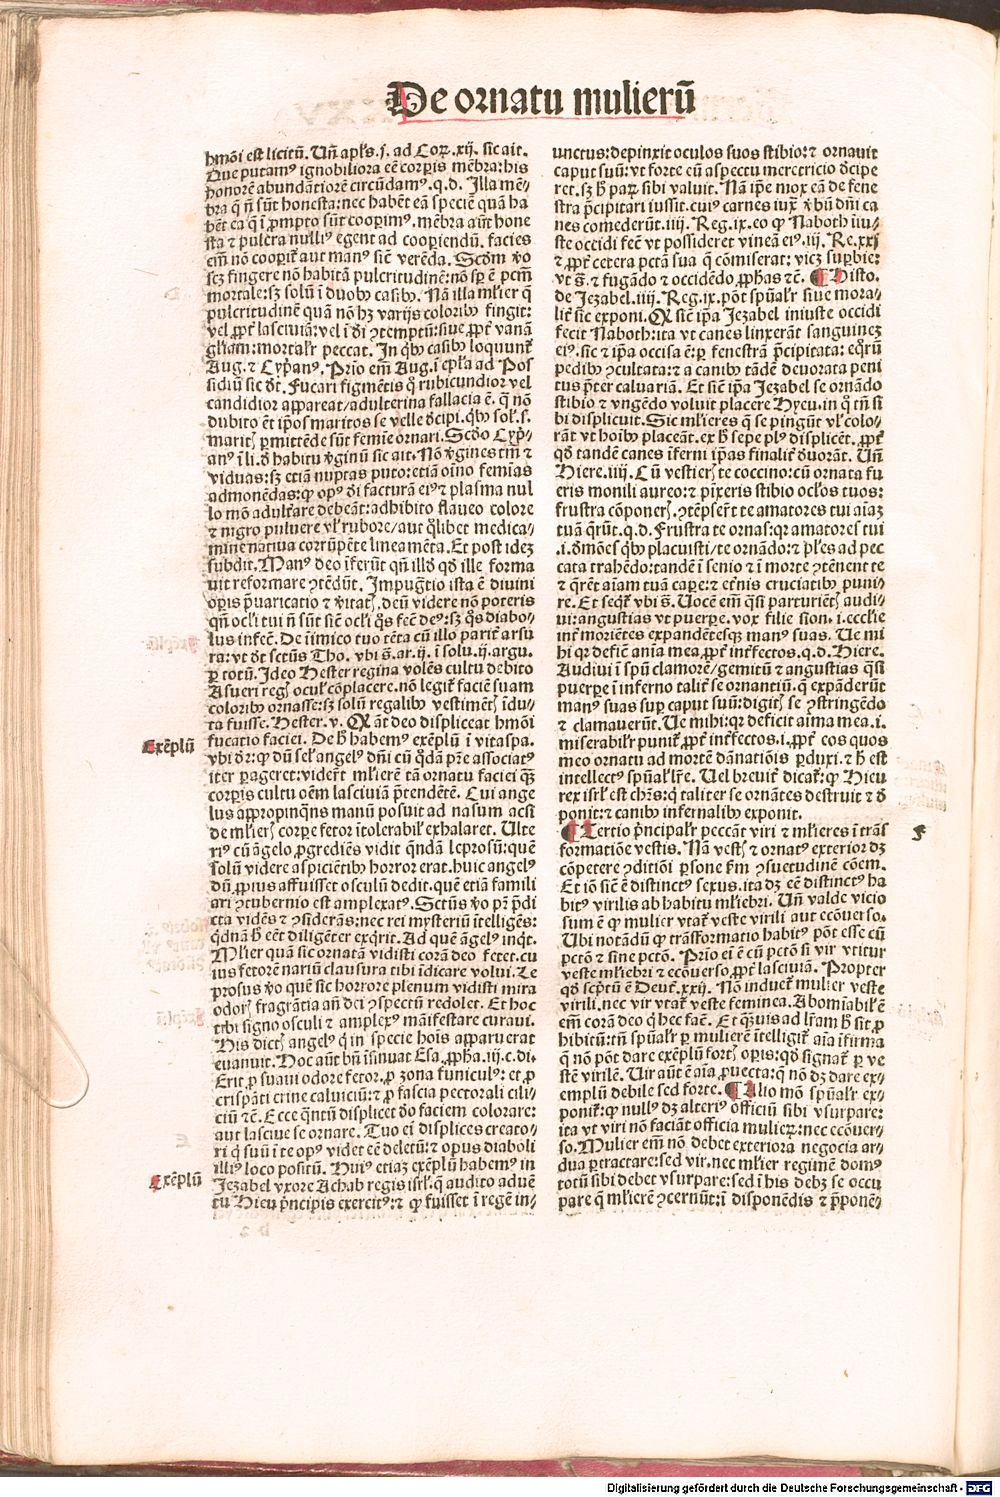 De ornatu mulierū
hmōi est licitū. Un̄ apl's .j. ad Cor. xij. sic ait.
Que putamꝰ ignobiliora eē corpis mēbra: his
honorē abundātiorē circūdamꝰ. q.d. Illa mē-
bra q̄ nō sūt honesta: nec habēt eā speciē quā ha
bēt ea q̄ ī prompto sūt cooprimꝰ. mēbra aūt hone
sta ⁊ pulcra nulliꝰ egent ad cooperiendū. facies
em̄ nō cooprit̄ aut manꝰ sicut verēda. Scdm vo
scꝫ fingere nō habitā pulcritudinē: nō sp ē pctm̄
mortale: sꝫ solū ī duobꝫ casibꝫ. Nā illa ml'ier q̄
pulcritudinē quā nō hꝫ varijs coloribꝫ fingit:
vel ꝓpt lasciuiā: vel ī dei ꝯtemptū: siue ꝓpt vanā
gl'iam: mortalr̄ peccat. In qbꝫ casibꝫ loquunt̄
Aug. ⁊ Cyp̄anꝰ. Prio em̄ Aug. ī epl'a ad Pos
sidiū sic dt. Fucari figmētis q̄ rubicundior vel
candidior appareat/adulterina fallacia ē. q̄ nō
dubito ēt ip̄os maritos se velle decipi. qbꝫ sol' .s.
marit' pmittēde sūt femīe ornari. Scdo Cyp̄i-
anꝰ ī li. de habitu vginū sic ait. Nō vgines tm̄ ⁊
viduas: sꝫ etiā nuptas puto: etiā oīno femīas
admonēdas: ꝙ opꝰ dei facturā eiꝰ ⁊ plasma nul
lo mō adult'are debeāt: adhibito flaueo colore
⁊ nigro puluere vl' rubore/aut qlibet medica-
mine natiua corrūpēte lineamēta. Et post idē
subdit. Manꝰ deo īferūt qn̄ illd qd ille forma
uit reformare ꝯtēdūt. Impugtio ista ē diuini
opis puaricatio ⁊ vitat'. deū videre nō poteris
qn̄ ocl'i tui nō sūt sicut ocl'i qs fecit deꝰ: sꝫ qs diabo-
lus infecit. De īimico tuo tēta cū illo parit arsu
ra: vt dt sctūs Tho. vbi s. ar. ij. ī solu. ij. argu.
p totū. Ideo Hester regina volēs cultu debito
Asueri reg' ocul' cōplacere. nō legit̄ faciē suam
coloribꝫ ornasse: sꝫ solū regalibꝫ vestimēt' īdu-
ta fuisse. Hester. v. Qd aūt deo displiceat hmōi
fucatio faciei. De h habemꝰ exēplū ī vitaspa.
vbi dr: ꝙ dū sel' angelꝰ dn̄i cū qdā pr̄e associatꝰ
iter pageret: viderēt ml'ierē tā ornatu faciei qꝫ
corpis cultu oēm lasciuiā p̄tendētē. Cui ange
lus appropinqns manū posuit ad nasum acsi
de ml'ier' corpe fetor ītolerabil' exhalaret. Ulte
riꝰ cū āgelo progrediēs vidit qndā leprosū: quē
solū videre aspiciētibꝫ horror erat. huic angelꝰ
dū ꝓpius affuisset osculū dedit. quē etiā famili
ari ꝯtubernio est amplexatꝰ. Sctūs vo pr̄ p̄di
cta vidēs ⁊ ꝯsiderās: nec rei mysteriū ītelligēs:
qdnā h eēt diligēter exqrit. Ad quē āgelꝰ inqt.
Ml'ier quā sic ornatā vidisti corā deo fetet. cu
ius fetorē nariū clausura tibi īdicare volui. Le
prosus vo quē sic horrore plenum vidisti mira
odor' fragrātia an̄ dei ꝯspectū redolet. Et hoc
tibi signo osculi ⁊ amplexꝰ māifestare curaui.
His dict' angelꝰ q̄ in specie hois apparuerat
euanuit. Hoc aūt bn̄ īsinuat Esa. ꝓpha. iij. c. di.
Erit p suaui odore fetor. p zona funiculꝰ: et p
crispāti crine caluiciū: ⁊ p fascia pectorali cili-
ciū ⁊c. Ecce qntū displicet deo faciem colorare:
aut lasciue se ornare. Tuo ei displices creato-
ri q̄ suū ī te opꝰ videt eē deletū: ⁊ opus diaboli
illiꝰ loco positū. Huiꝰ etiaꝫ exēplū habemꝰ in
Jezabel vxore Achab regis isrl'. q̄ audito aduē
tu Hieu pncipis exercitꝰ: ⁊ ꝙ fuisset ī regē in-
Exēplū
Exēplū
unctus: depinxit oculos suos stibio: ⁊ ornauit
caput suū: vt forte eū aspectu meretricio decipe
ret. sꝫ h paꝝ sibi valuit. Nā ip̄e mox eā de fene
stra p̄cipitari iussit. cuiꝰ carnes iux vbū dn̄i ca
nes comederūt. iiij. Reg. ix. eo ꝙ Naboth iiu-
ste occidi fecit vt possideret vineā eiꝰ. iij. Re. xxj
⁊ ꝓpt cetera pctā sua q̄ cōmiserat: vicꝫ supbie:
vt s. ⁊ fugādo ⁊ occidēdo ꝓphas ⁊c. ¶ Histo.
de Jezabel. iiij. Reg. ix. pōt spūalr̄ siue mora-
lit̄ sic exponi. Qd sicut ip̄a Jezabel iniuste occidi
fecit Naboth: ita vt canes linxerāt sanguinez
eiꝰ. sic ⁊ ip̄a occisa ē: p fenestrā p̄cipitata: eqꝝū
pedibꝫ ꝯcultata: ⁊ a canibꝫ tādē deuorata peni
tus p̄ter caluariā. Et sicut ip̄a Jezabel se ornādo
stibio ⁊ vngēdo voluit placere Hyeu. in q̄ tn̄ si
bi displicuit. Sic ml'ieres q̄ se pingūt vl' colo-
rāt vt hoibꝫ placeāt. ex h sepe plꝰ displicēt. ꝓpt
qd tandē canes īferni ip̄as finalit̄ deuorāt. Un̄
Hiere. iiij. Cū vestier' te coccino: cū ornata fu
eris monili aureo: ⁊ pīxeris stibio ocl'os tuos:
frustra cōponer'. ꝯtēpserūt te amatores tui aīaꝫ
tuā qrūt. q.d. Frustra te ornas: qr amatores tui
.i. demōes qbꝫ placuisti/te ornādo: ⁊ pl'es ad pec
cata trahēdo: tandē ī senio ⁊ ī morte ꝯtēnent te
⁊ qrēt aīam tuā cape: ⁊ etnis cruciatibꝫ puni-
re. Et seqt̄ vbi s. Uocē em̄ qsi parturiēt' audi-
ui: angustias vt puerpe. vox filie sion. i. ecclie
int' moriētes expandētesqꝫ manꝰ suas. Ue mi
hi qr deficit anīa mea ꝓpt int'fectos. q.d. Hiere.
Audiui ī spū clamorē/gemitū ⁊ angustias qsi
puerpe ī inferno talit̄ se ornantiū. q̄ expāderūt
manꝰ suas sup caput suū: digit' se ꝯstringēdo
⁊ clamauerūt. Ue mihi: qr deficit aīma mea. i.
miserabilr̄ punit̄ ꝓpt int'fectos. i. ꝓpt eos quos
meo ornatu ad mortē dānatiōnis pduxi. ⁊ h est
intellectꝰ spūalr̄e. Uel breuit̄ dicat̄: ꝙ Hieu
rex isrl' est chrs: q̄ taliter se ornātes destruit ⁊ de
ponit: ⁊ canibꝫ infernalibꝫ exponit.
¶ Tertio p̄ncipalr̄ peccāt viri ⁊ ml'ieres ī trās
formatiōe vestis. Nā vest' ⁊ ornatꝰ exterior dꝫ
cōpetere ꝯditiōi psone scdm ꝯsuetudinē cōem.
Et iō sicut ē distinctꝰ sexus. ita dꝫ eē distinctꝰ ha
bitꝰ virilis ab habitu ml'iebri. Un̄ valde vicio
sum ē ꝙ mulier vtat̄ veste virili aut ecōuerso.
Ubi notādū ꝙ trāsformatio habitꝰ pōt esse cū
pctō ⁊ sine pctō. Prio ei ē cū pctō si vir vtitur
veste ml'iebri ⁊ ecōuerso ꝓpt lasciuiā. Propter
qd sc̄ptū ē Deut. xxij. Nō induet̄ mulier veste
virili. nec vir vtat̄ veste feminea. Abomīabil' ē
em̄ corā deo q̄ hec facit. Et qꝫuis ad lr̄am h sit ꝓ
hibitū: tn̄ spūalr̄ p mulierē ītelligit̄ aīa īfirma
q̄ nō pōt dare exēplū fort' opis: qd signat̄ p ve
stē virilē. Uir aūt ē aīa ꝓuecta: q̄ nō dꝫ dare ex-
emplū debile sed forte. ¶ Alio mō spūalr̄ ex-
ponit̄: ꝙ nullꝰ dꝫ alteriꝰ officiū sibi vsurpare:
ita vt viri nō faciāt officia mulieꝝ: nec ecōuer-
so. Mulier em̄ nō debet exteriora negocia ar-
dua ptractare: sed vir. nec ml'ier regimē domꝰ
totū sibi debet vsurpare: sed ī his debꝫ se occu
pare q̄ ml'ierē ꝯcernūt: ī disponēdis ⁊ p̄ponē-
F
Digitalisierung gefördert durch die Deutsche Forschungsgemeinschaft - DFG